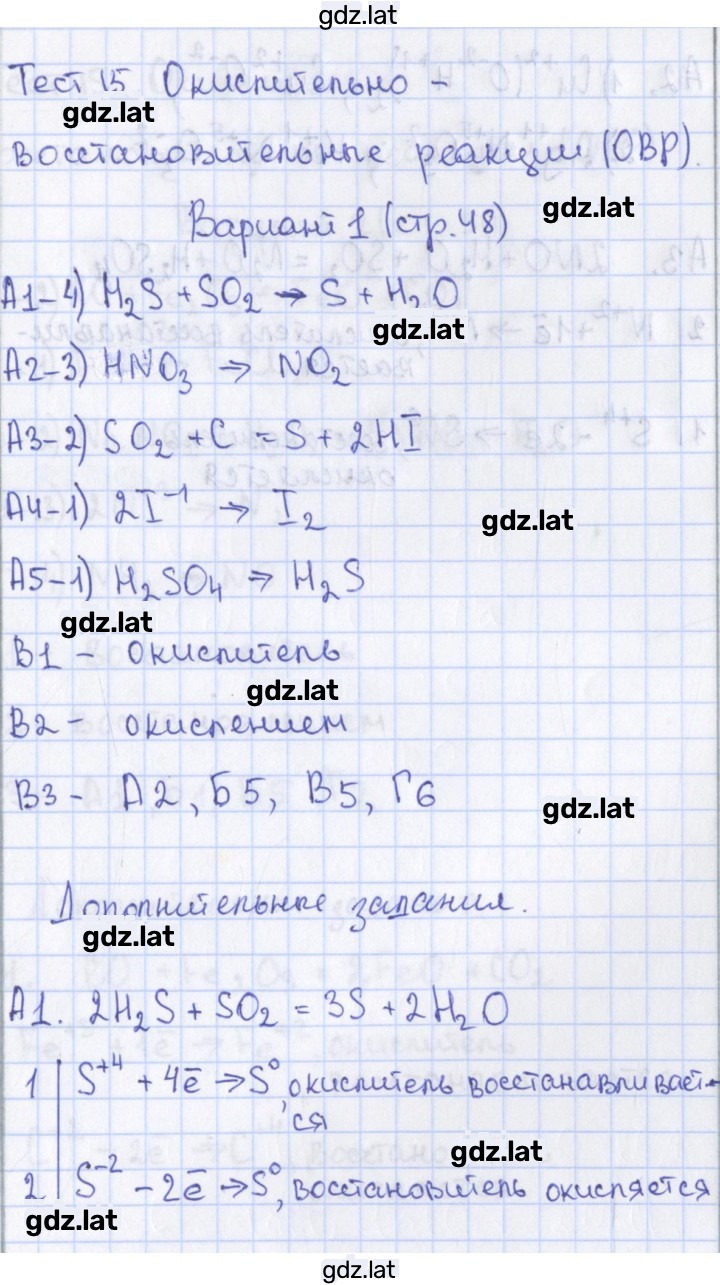 gdz.lat
Тест 15 Окислительно -
gdz.lat
восстановительные реакции (ОВР).
gdz.lat
Вариант 1 (стр.48)
А1-4) H₂S + SO₂ → S + H₂O
gdz.lat
А2-3) HNO₃ → NO₂
А3-2) SO₂ + C = S + 2HI
А4-1) 2I⁻¹ → I₂
gdz.lat
А5-1) H₂SO₄ → H₂S
gdz.lat
В1 - окислитель
gdz.lat
В2 - окислением
В3 - А2, Б5, В5, Г6
gdz.lat
Дополнительные задания.
gdz.lat
А1. 2H₂S + SO₂ = 3S + 2H₂O
1 | S⁺⁴ + 4ē → S⁰, окислитель восстанавливает-
ся
gdz.lat
2 | S⁻² - 2ē → S⁰, восстановитель окисляется
gdz.lat
gdz.lat